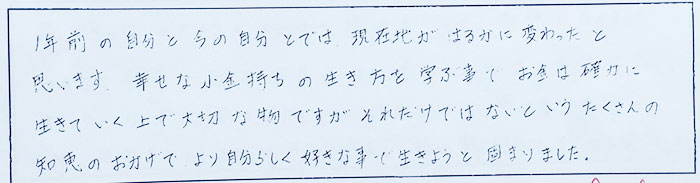 1年前の自分と今の自分とでは、現在地がはるかに変わったと
思います。幸せな小金持ちの生き方を学ぶ事で お金は確かに
生きていく上で大切な物ですが それだけではないというたくさんの
知恵のおかげで より自分らしく好きな事で生きようと固まりました。